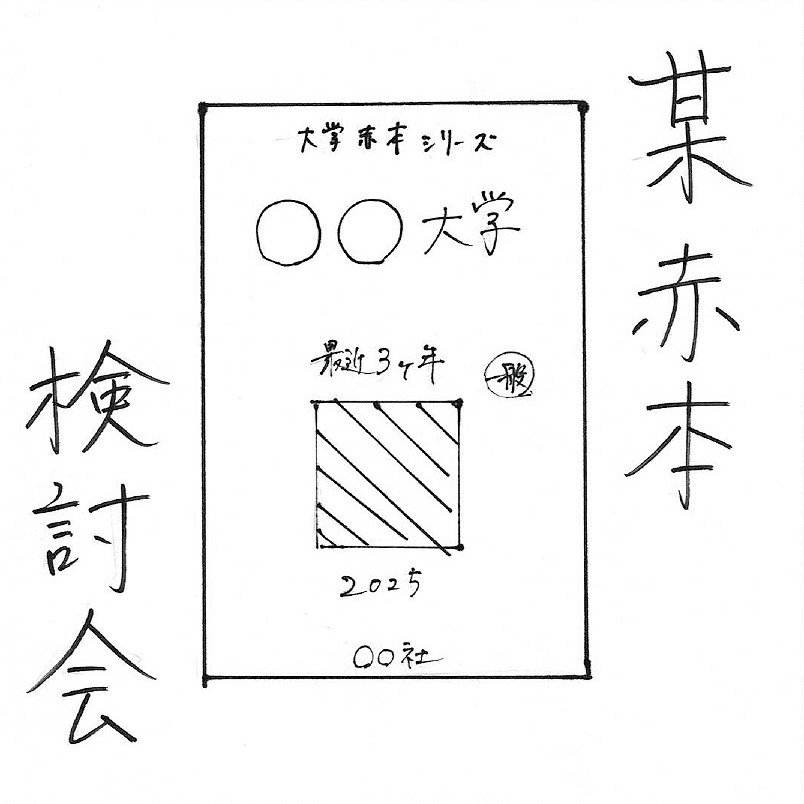 某赤本
大学赤本シリーズ
〇〇大学
最近3ヶ年
一般
2025
〇〇社
検討会